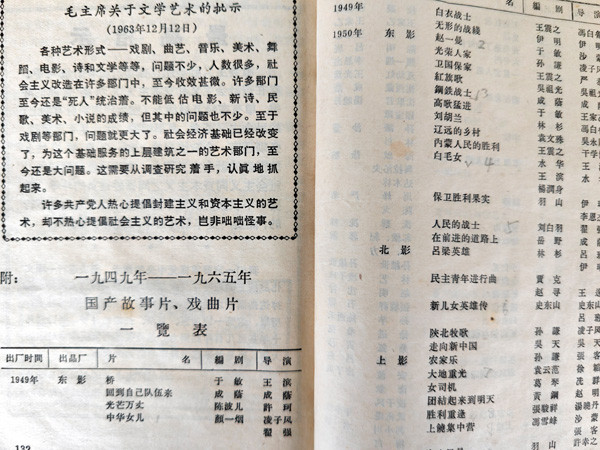 毛主席关于文学艺术的批示
（1963年12月12日）
各种艺术形式——戏剧、曲艺、音乐、美术、舞
蹈、电影、诗和文学等等，问题不少，人数很多，社
会主义改造在许多部门中，至今收效甚微。许多部门
至今还是“死人”统治着。不能低估电影、新诗、民
歌、美术、小说的成绩，但其中的问题也不少。至于
戏剧等部门，问题就更大了。社会经济基础已经改变
了，为这个基础服务的上层建筑之一的艺术部门，至
今还是大问题。这需要从调查研究着手，认真地抓
起来。
许多共产党人热心提倡封建主义和资本主义的艺
术，却不热心提倡社会主义的艺术，岂非咄咄怪事。
附：
一九四九年——一九六五年
国产故事片、戏曲片
一覽表
出厂时间 出品厂 片 名 編 剧 导 演
1949年 东影 桥 于敏 王滨
回到自己队伍来 成蔭 成蔭
光芒万丈 陈波儿 許珂
中华女儿 顏一烟 凌子风
翟强
132
1949年 白衣战士
1950年 东影 无形的战线 王震之 伊
赵一曼 2 伊明
光荣人家 于敏
卫国保家 孙谦
紅旗歌 王震之 吳
鋼鉄战士 3 吳祖光
高歌猛进 成蔭 成
刘胡兰 于敏 王
辽远的乡村 林杉 馮白
內蒙人民的胜利 袁文殊 吳
白毛女 4 王震之 干学
水华 王
王滨 水
楊潤身
保卫胜利果实 羽山 伊
人民的战士 5 刘白羽 翟
在前进的道路上 岳野 成
北影 吕梁英雄 林杉 呂
民主青年进行曲 賈克 王
赵寻
新儿女英雄传 史东山 史东
呂
陝北牧歌 孙谦 凌子
走向新中国 吳天 吳
上影 农家乐 孙谦 張客
大地重光 袁云范 徐
女司机 葛琴 冼
团結起来到明天 黃鋼 赵
胜利重逢 張駿祥 湯曉
上饒集中营 馮雪峰 沙
羽山